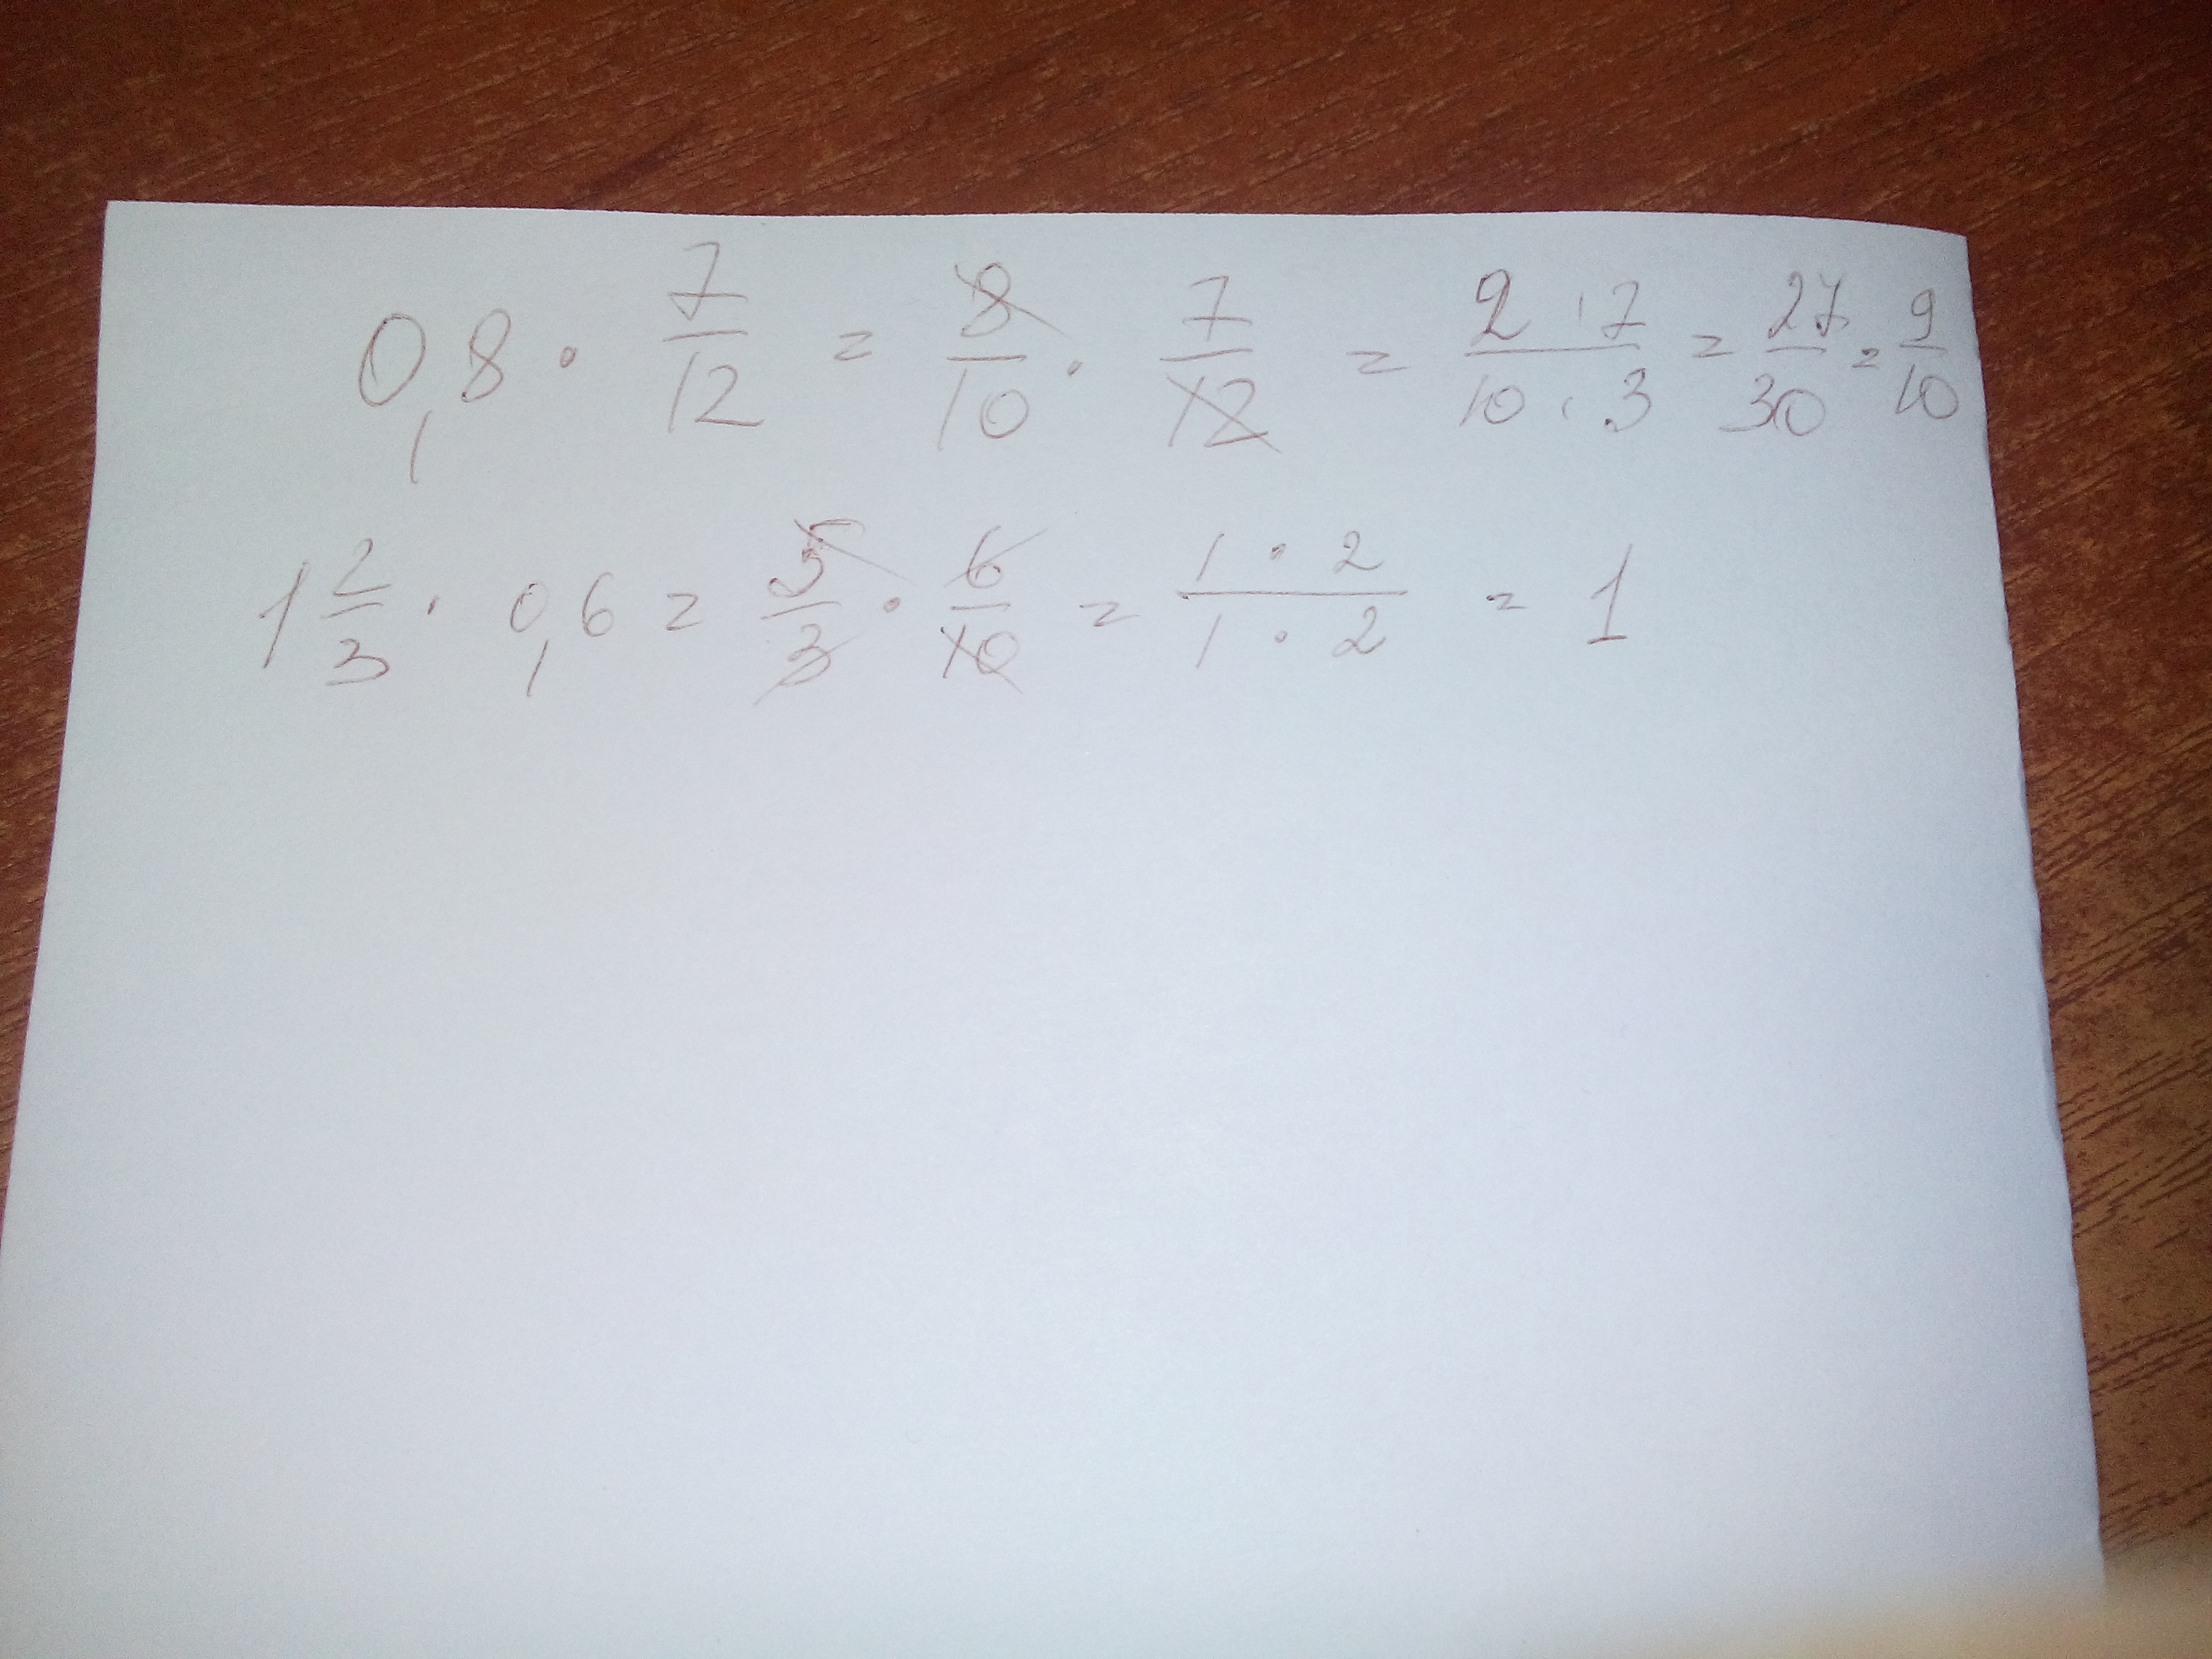 0,8 · 7/12 = 8/10 · 7/12 = 2 · 7/10 · 3 = 27/30 = 9/10
1 2/3 · 0,6 = 5/3 · 6/10 = 1 · 2/1 · 2 = 1